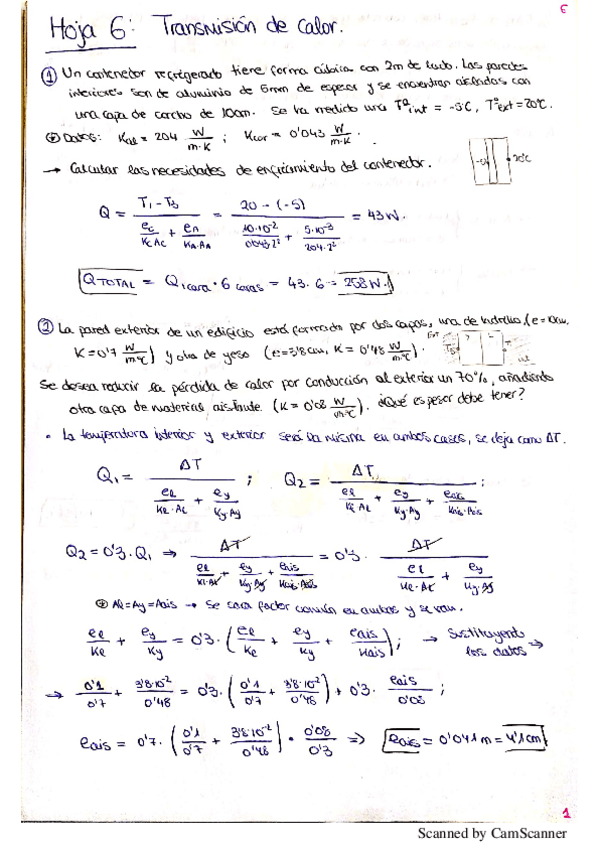 6
Hoja 6: Transmisión de Calor.
① Un contenedor refrigerado tiene forma cúbica con 2m de lado. Las paredes
interiores son de aluminio de 5mm de espesor y se encuentran aisladas con
una capa de corcho de 10cm. Se ha medido una Tª int = -5C, Tª ext = 20°C.
Datos: Kal = 204 W/m·K ; Kcor = 0'043 W/m·K.
→ Calcular las necesidades de enfriamiento del contenedor.
-5 20°C
Q = (T1 - T3) / (ec/(Kc Ac) + en/(KA·AA)) = (20 - (-5)) / (10·10^-2/(0'043·2^2) + 5·10^-3/(204·2^2)) = 43 W.
QTOTAL = Q1cara · 6 caras = 43 · 6 = 258 W.
② La pared exterior de un edificio está formada por dos capas, una de ladrillo (e = 10cm,
K = 0'7 W/m·°C) y otra de yeso (e = 3'8cm, K = 0'48 W/m·°C).
Ext int
Se desea reducir la pérdida de calor por conducción al exterior un 70%, añadiendo
otra capa de material aislante (K = 0'08 W/m°C). ¿Qué espesor debe tener?
• La temperatura interior y exterior será la misma en ambos casos, se deja como ΔT.
Q1 = ΔT / (el/(Kl·Al) + ey/(Ky·Ay)) ; Q2 = ΔT / (el/(Kl·Al) + ey/(Ky·Ay) + eais/(Kais·Aais)) ;
Q2 = 0'3 · Q1 ⇒ ΔT / (el/(Kl·Al) + ey/(Ky·Ay) + eais/(Kais·Aais)) = 0'3 · ΔT / (el/(Kl·Al) + ey/(Ky·Ay))
Al = Ay = Aais → Se saca factor común en ambos y se van.
el/Kl + ey/Ky = 0'3 · (el/Kl + ey/Ky + eais/Kais) ; → Sustituyendo
los datos →
→ 0'1/0'7 + 3'8·10^-2/0'48 = 0'3 · (0'1/0'7 + 3'8·10^-2/0'48) + 0'3 · eais/0'08 ;
eais = 0'7 · (0'1/0'7 + 3'8·10^-2/0'48) · 0'08/0'3 ⇒ eais = 0'041m = 4'1cm
1
Scanned by CamScanner